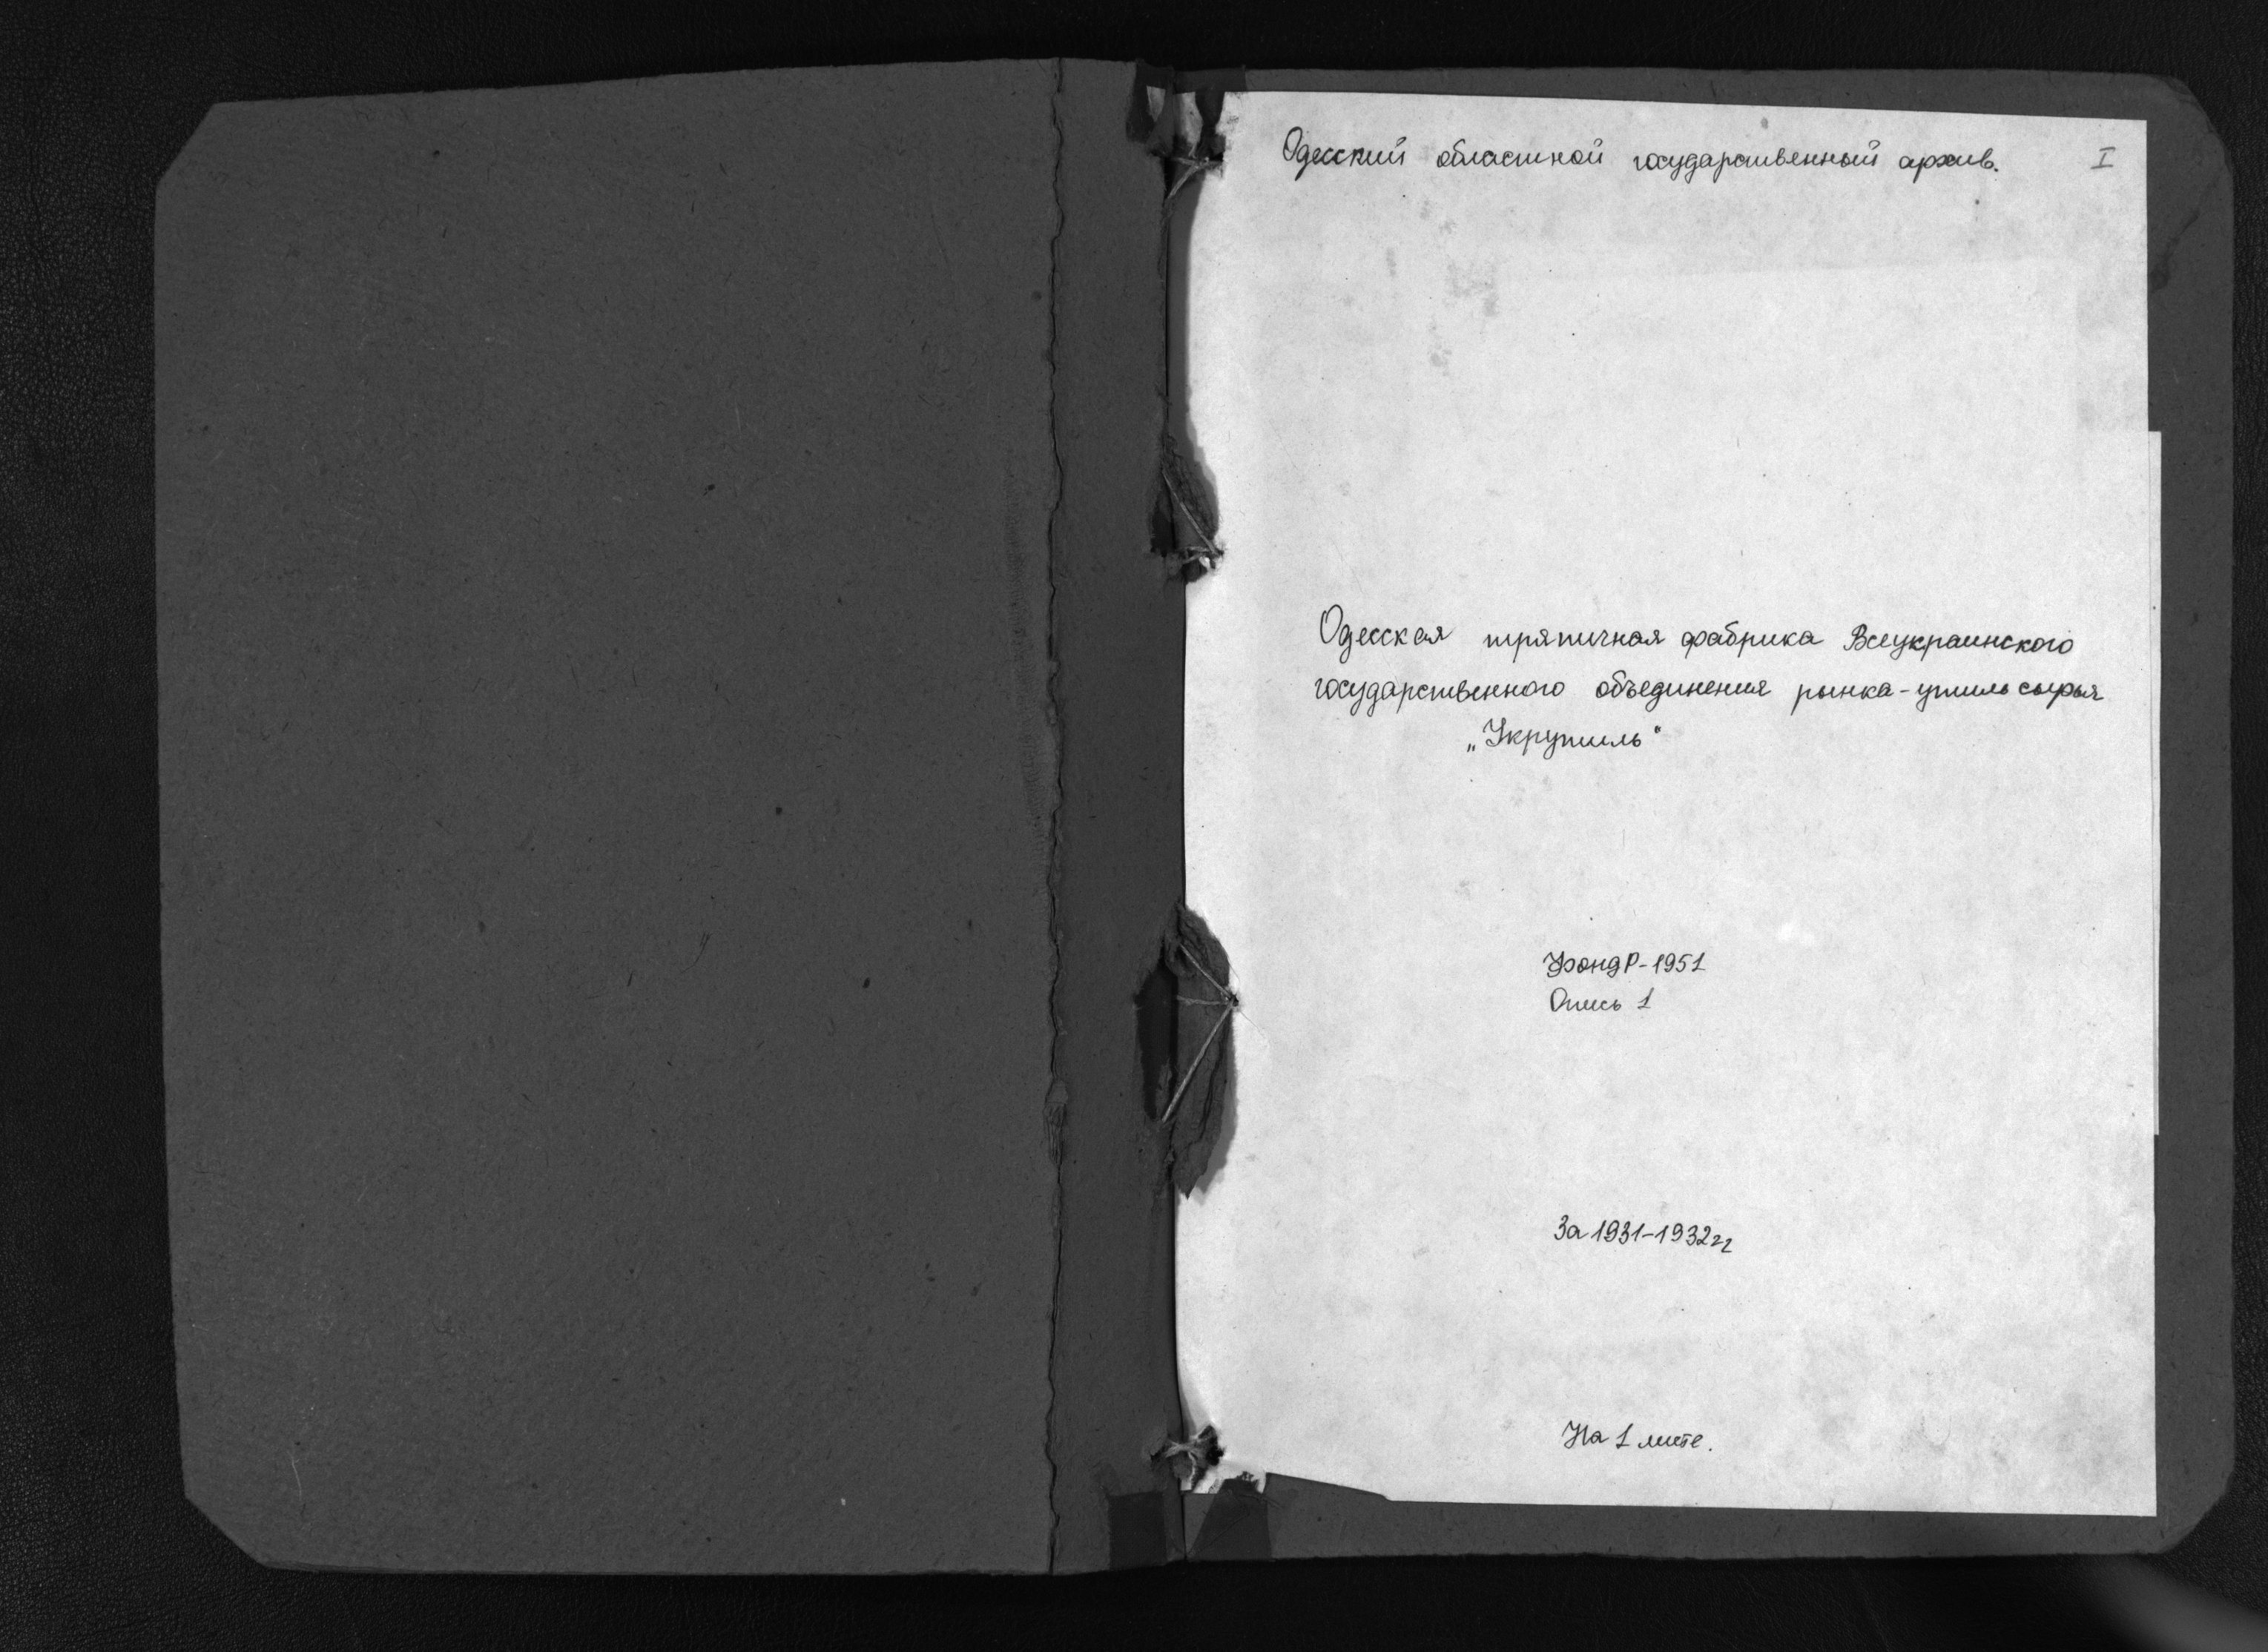 Одесский областной государственный архив. I
Одесская тряпичная фабрика Всеукраинского
государственного объединения рынка-утильсырья
„Укрутиль“
Фонд Р-1951
Опись 1
За 1931-1932гг
На 1 листе.